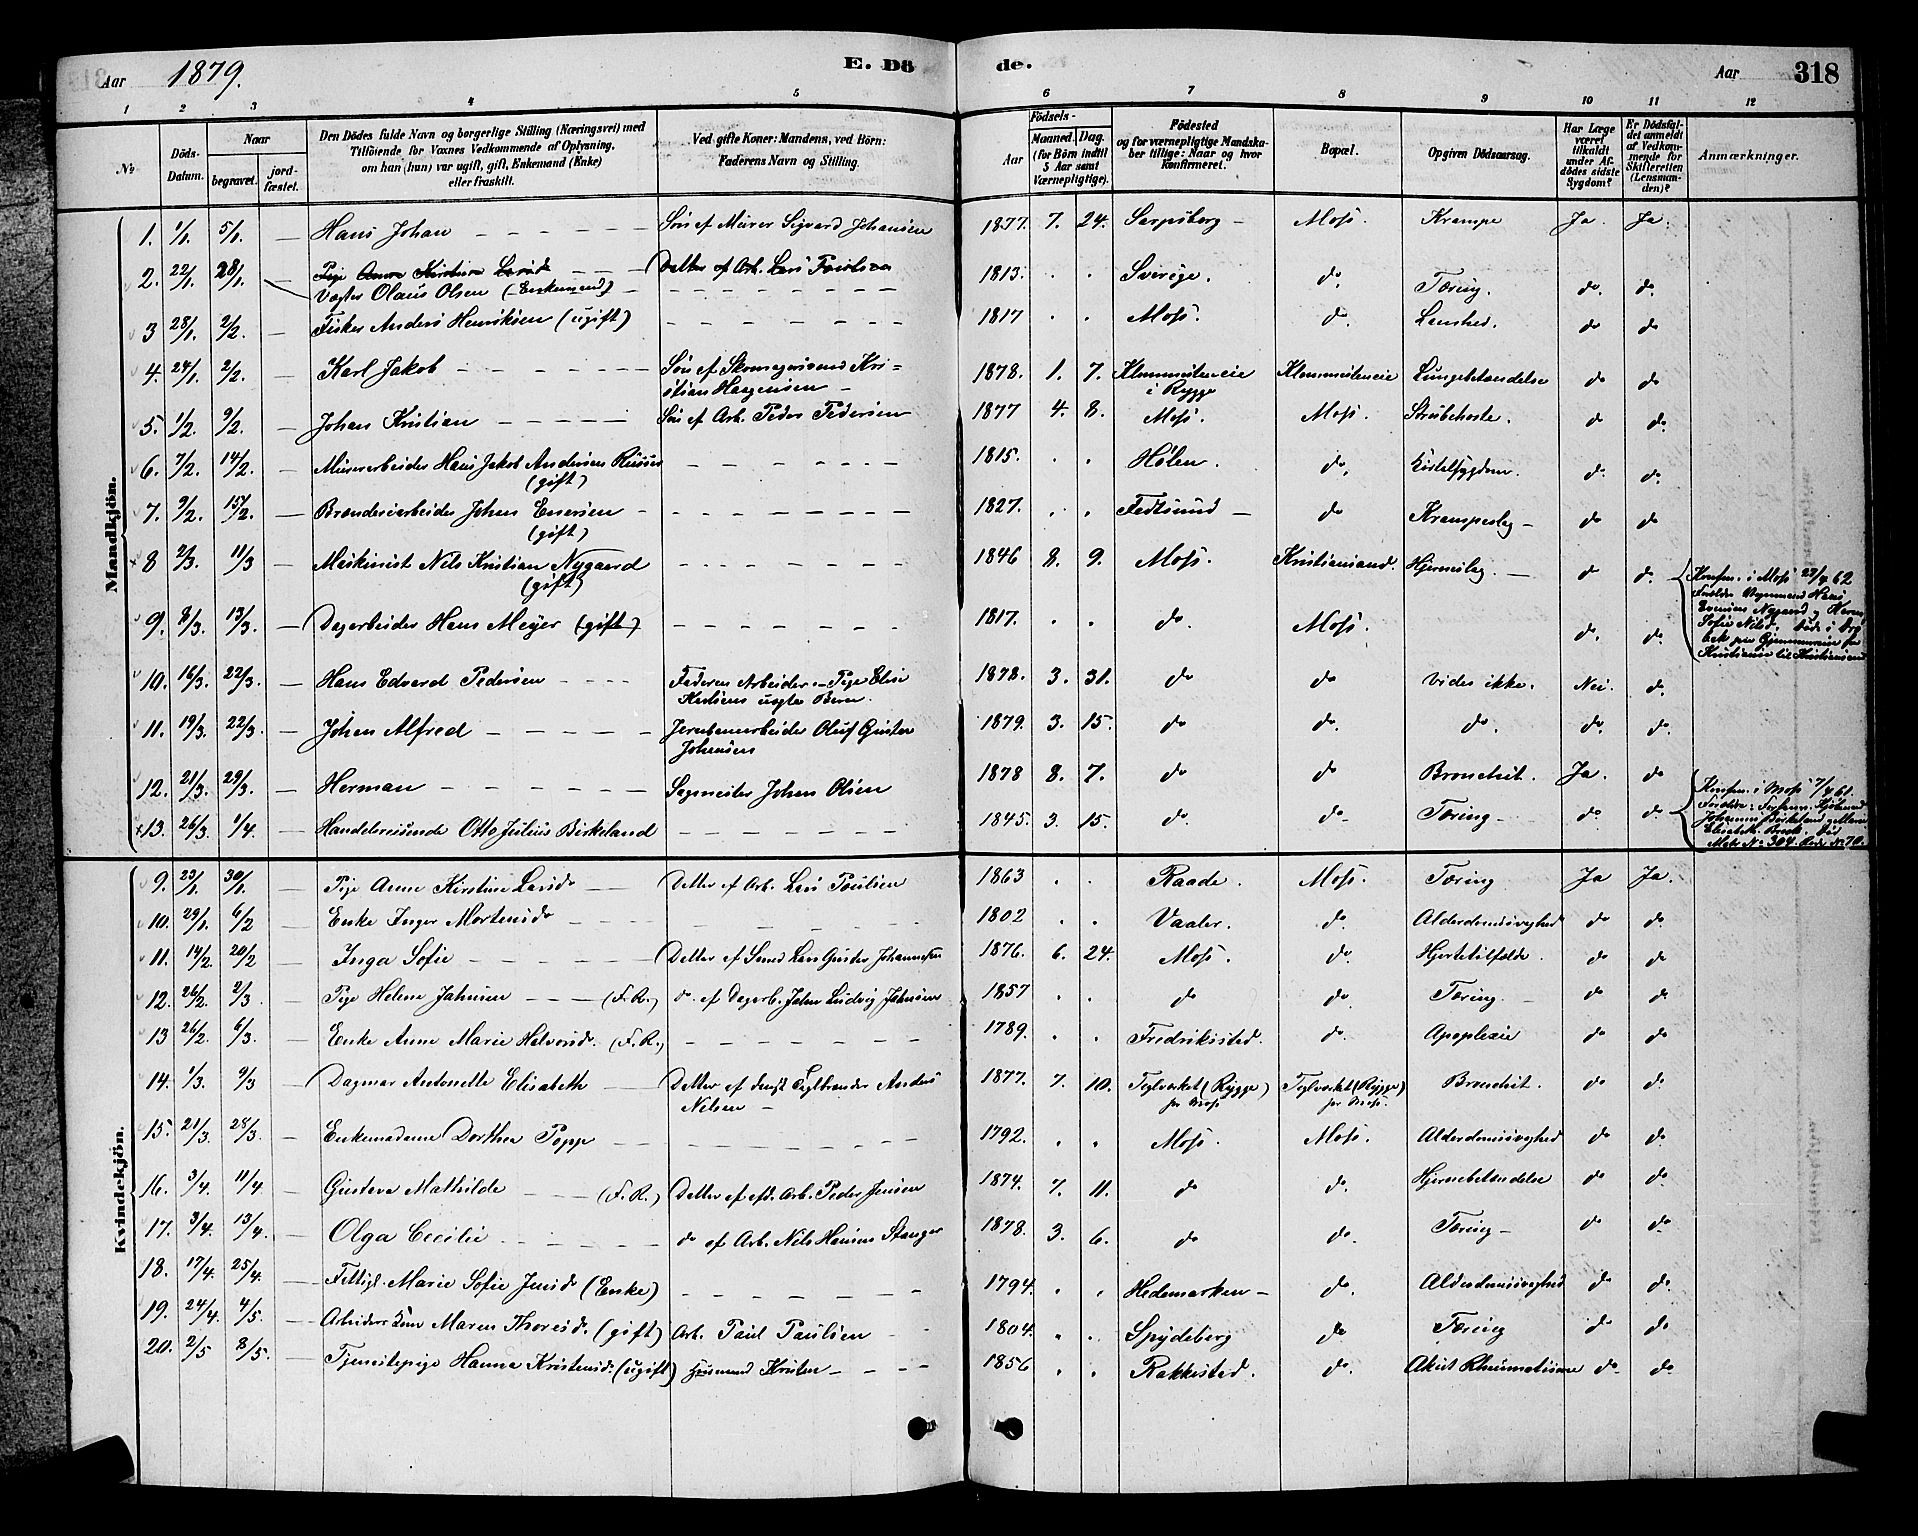 Aar 1879. E. Dö de. Aar 318
1 2 3 4 5 6 7 8 9 10 11 12
No. Döds-Datum. Naar begravet. jord-fæstet. Den Dödes fulde Navn og borgerlige Stilling (Næringsvei) med Tilföiende for Voxnes Vedkommende af Oplysning, om han (hun) var ugift, gift, Enkemand (Enke) eller fraskilt. Ved gifte Koner: Mandens, ved Börn: Faderens Navn og Stilling. Födsels- Aar Maaned. Dag. (for Börn indtil 5 Aar samt Værnepligtige). Födested og for værnepligtige Mandskaber tillige: Naar og hvor Konfirmeret. Bopæl. Opgiven Dödsaarsag. Har Læge været tilkaldt under Afdödes sidste Sygdom? Er Dödsfaldet anmeldt af Vedkommende for Skifteretten (Lensmanden)? Anmærkninger.
Mandkjön.
1. 1/1. 5/1. — Hans Johan — Sön af Murer Sigvard Johansen 1877. 7. 24. Sarpsborg — Moss. Krampe Ja. Ja.
2. 22/1. 28/1. — Pige Anne Kirstine Larsd. — Datter af Arb. Lars Poulsen
Vægter Olaus Olsen (Enkemand) — 1813. " " Sverige. do. Tæring. do. do.
3 28/1. 2/2. — Fisker Anders Henriksen (ugift) — 1817 " " Moss. do. do. do.
4. 24/1. 2/2. — Karl Jakob — Sön af Skomagersvend Kristian Haagensen — 1878. 1. 7. i Rygge Lungebetændelse do do
5. 1/2. 9/2. — Johan Kristian — Sön af Arb. Peder Pedersen 1877 4. 8. Moss. Moss. Strubehoste. do do.
6. 7/2. 14/2. — Murerarbeider Hans Jakob Andersen (gift) — 1815. " " Hölen. do. Kirtelsygdom. do. do.
7. 9/2. 15/2. — Brænderiarbeider Johan Enersen (gift) — 1827. " " Fedtsund — do do do
8 2/3. 11/3 — Maskinist Nils Kristian Nygaard (gift) — 1846 8. 9. Moss. Kristiansand. Hjerneslag. — do do. Konfirm. i Moss 27/4 62
9. 8/3. 13/3. — Dagarbeider Hans Meyer (gift) — 1817. " " do. Moss. do. do. Kristiania til Kristiansand
10. 16/3. 22/3. — Hans Edvard Pedersen — Faderen Arbeider — Pige Elise uægte Barn. 1878. 3. 31. do do Vides ikke. Nei. do.
11. 19/3. 22/3. — Johan Alfred — Jernbanearbeider Oluf Gustav Johansen 1879. 3. 15. do do. do. do. do.
12. 21/3. 29/3. — Herman — Sagmester Johan Olsen 1878 8. 7. do do Bronchit. Ja. do
13. 26/3. 1/4. — Handelsreisende Otto Julius Birkeland — 1845. 3. 15. do. do. Tæring — do. do Konfirm. i Moss 7/4 61.
Kvindekjön.
9. 23/1. 30/1. — Pige Anne Kirstine Larsd. — Datter af Arb. Lars Poulsen 1863 " " Raade. Moss. Tæring Ja Ja.
10. 29/1. 6/2 — Enke Inger Mortensd. — 1802 " " Vaaler. do. Alderdomssvaghed do do.
11. 14/2. 20/2 — Inga Sofie — Datter af Smed Lars Gustav Johannesen 1876. 6. 24. Moss. do. Hjertetilfælde. do do
12. 26/2. 2/3. — Pige Helene Jahnsen — (F.R.) do. af Dagarb. John Ludvig Jahnsen 1857 " " do do. Tæring. — do do
13 26/2. 6/3. — Enke Anne Marie Halvorsd. (F.R.) — 1789. " " Fredriksstad. do. Apoplexie do do
14. 1/3. 9/3 — Dagmar Antonette Elisabeth — Datter af Teglbrænder Anders Nilsen — 1877. 7. 10. Teglverket (Rygge) pr Moss Teglverket (Rygge) pr Moss. Bronchit. do do.
15. 21/3. 28/3. — Enkemadame Dorthea Popp — 1792. " " Moss. Moss. Alderdomssvaghed do do.
16. 3/4. 11/4 — Gustava Mathilde — (F.R.) Datter af Arb. Peder Jensen 1874. 7. 11. do do. Hjernebetændelse do do.
17. 3/4. 13/4. — Olga Cecilie — do af Arb. Nils Hansen Stanger 1878. 3. 6. do do. Tæring — do do.
18. 17/4. 25/4. — Fattigl. Marie Sofie Jensd. (Enke) — 1794. " " Hedemarken — do. Alderdomssvaghed do do.
19. 24/4. 4/5. — Arbeiderskone Maren Thoresd. (gift) Arb. Paul Paulsen — 1804. " " Spydeberg do Tæring do do
20. 2/5 8/5. — Tjenestepige Hanna Kristensd. (ugift) Husmand Kristen — 1856 " " Rakkestad. do. Akut Rheumatisme do. do.